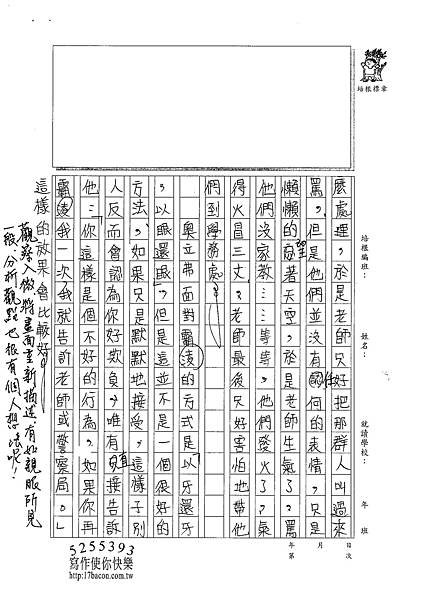 培根標章
培根編班：
姓名：
就讀學校：
年 班
年 月 日
第 次
麼處理，於是老師只好把那群人叫過來
罵，但是他們並沒有任何的表情，只是
懶懶的望著天空，於是老師生氣了，罵
他們沒家教……等等。他們發火了，氣
得火冒三丈，老師最後只好害怕地帶他
們到學務處。
奧立弗面對霸凌的方式是以牙還牙
，以眼還眼，但是這並不是一個很好的
方法，如果只是默默地接受，這樣子別
人反而會認為你好欺負，唯有直接告訴
他：「你這樣是個不好的行為，如果你再
霸凌我一次我就告訴老師或警察局。」
這樣的效果會比較好。
觀察入微將畫面重新描述有如親眼所見
一般分析觀點也很有個人想法呢！
5255393
寫作使你快樂
http://17bacon.com.tw/